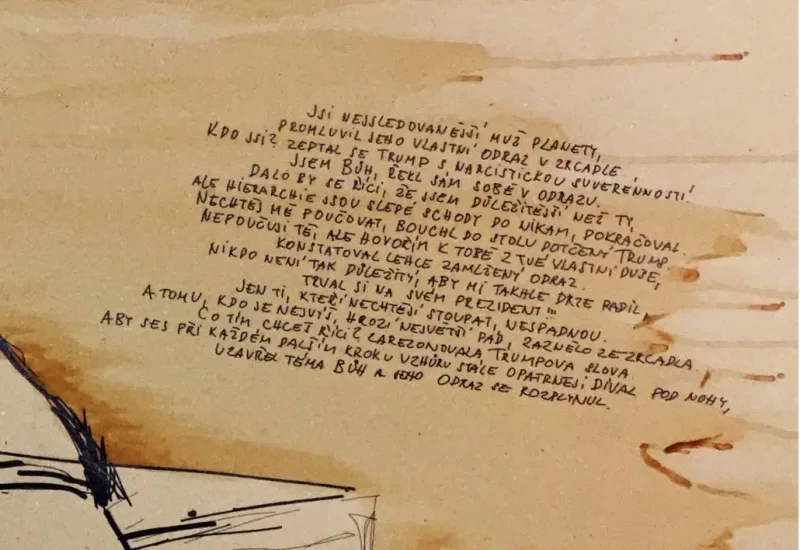 JSI NEJSLEDOVANĚJŠÍ MUŽ PLANETY,
PROMLUVIL JEHO VLASTNÍ ODRAZ V ZRCADLE.
KDO JSI? ZEPTAL SE TRUMP S NARCISTICKOU SUVERENNOSTÍ.
JSEM BŮH, ŘEKL SÁM SOBĚ V ODRAZU.
DALO BY SE ŘÍCI, ŽE JSEM DŮLEŽITĚJŠÍ NEŽ TY,
ALE HIERARCHIE JSOU SLEPÉ SCHODY DO NIKAM, POKRAČOVAL.
NECHTĚJ MĚ POUČOVAT, BOUCHL DO STOLU DOTČENÝ TRUMP.
NEPOUČUJI TĚ, ALE HOVOŘÍM K TOBĚ Z TVÉ VLASTNÍ DUŠE,
KONSTATOVAL LEHCE ZAMLŽENÝ ODRAZ.
NIKDO NENÍ TAK DŮLEŽITÝ, ABY MI TAKHLE DRZE RADIL,
TRVAL SI NA SVÉM PREZIDENT!!!
JEN TI, KTEŘÍ NECHTĚJÍ STOUPAT, NESPADNOU.
A TOMU, KDO JE NEJVÝŠ, HROZÍ NEJVĚTŠÍ PÁD, ZAZNĚLO ZE ZRCADLA.
CO TÍM CHCEŠ ŘÍCI? ZAREZONOVALA TRUMPOVA SLOVA.
ABY SES PŘI KAŽDÉM DALŠÍM KROKU VZHŮRU STÁLE OPATRNĚJI DÍVAL POD NOHY,
UZAVŘEL TÉMA BŮH A JEHO ODRAZ SE ROZPLYNUL.